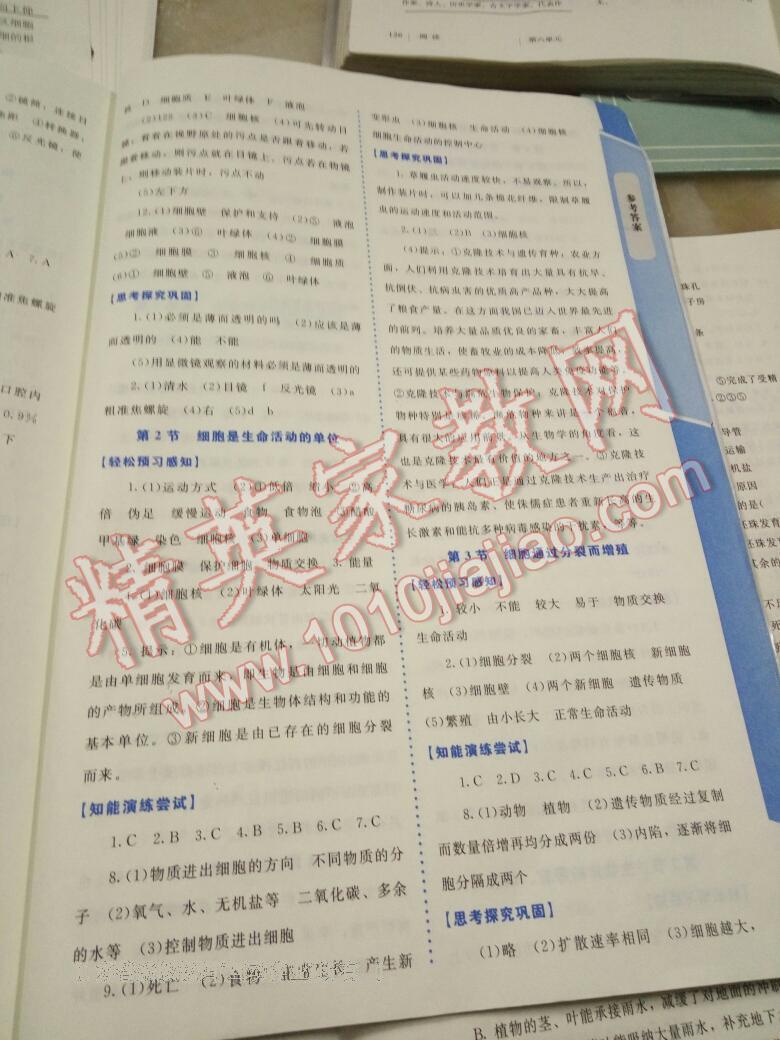 ②镜筒，连接目
④转换器，
⑥反光镜，使
A 7.A
准焦螺旋
口腔内
0.9%
下
D 细胞质 E 叶绿体 F 液泡
(2)123 (3)C 细胞核 (4)可先转动目
镜，看看在视野原处的污点是否跟着移动，若
跟着移动，则污点就在目镜上，污点若在物镜
上，则移动装片时，污点不动
(5)左下方
12.(1)细胞壁 保护和支持 (2)⑤ 液泡
细胞液 (3)⑥ 叶绿体 (4)② 细胞膜
(5)② 细胞膜 ③ 细胞核 ④ 细胞质
(6)① 细胞壁 ⑤ 液泡 ⑥ 叶绿体
【思考探究巩固】
1.(1)必须是薄而透明的吗 (2)应该是薄
而透明的 (4)能 不能
(5)用显微镜观察的材料必须是薄而透明的
2.(1)清水 (2)目镜 f 反光镜 (3)a
粗准焦螺旋 (4)右 (5)d b
第2节 细胞是生命活动的单位
【轻松预习感知】
1.(1)运动方式 (2)①低倍 缩小 ②高
倍 伪足 缓慢运动 食物 食物泡 ③醋酸
甲基绿 染色 细胞核 (3)单细胞
2.细胞膜 保护细胞 物质交换 3.能量
4.(1)细胞核 (2)叶绿体 太阳光 二氧
化碳
5.提示：①细胞是有机体，一切动植物都
是由单细胞发育而来，即生物是由细胞和细胞
的产物所组成。②细胞是生物体结构和功能的
基本单位。③新细胞是由已存在的细胞分裂
而来。
【知能演练尝试】
1.C 2.B 3.C 4.B 5.B 6.C 7.C
8.(1)物质进出细胞的方向 不同物质的分
子 (2)氧气、水、无机盐等 二氧化碳、多余
的水等 (3)控制物质进出细胞
9.(1)死亡 (2)食物 正常生长 产生新
变形虫 (3)细胞核 生命活动 (4)细胞核
细胞生命活动的控制中心
【思考探究巩固】
1.草履虫活动速度较快，不易观察。所以，
制作装片时，可以加几条棉花纤维，限制草履
虫的运动速度和活动范围。
2.(1) (2)B (3)细胞核
(4)提示：①克隆技术与遗传育种，农业方
面，人们利用克隆技术培育出大量具有抗旱、
抗倒伏、抗病虫害的优质高产品种，大大提高
了粮食产量。在这方面我国已迈入世界最先进
的前列。培养大量品质优良的家畜，丰富人们
的物质生活，使畜牧业的成本降低，效率提高，
还可提供某些药物原料以提高人类免疫功能等。
②克隆技术与濒危生物保护，克隆技术对保护
物种特别是珍稀、濒危物种来讲是一个福音，
具有很大的应用前景。从生物学的角度看，这
也是克隆技术最有价值的地方之一。③克隆技
术与医学，人们正是通过克隆技术生产出治疗
糖尿病的胰岛素、使侏儒症患者重新长高的生
长激素和能抗多种病毒感染的干扰素，等等。
第3节 细胞通过分裂而增殖
【轻松预习感知】
1.较小 不能 较大 易于 物质交换
生命活动
2.(1)细胞分裂 (2)两个细胞核 新细胞
核 (3)细胞壁 (4)两个新细胞 遗传物质
(5)繁殖 由小长大 正常生命活动
【知能演练尝试】
1.C 2.D 3.C 4.C 5.C 6.B 7.C
8.(1)动物 植物 (2)遗传物质经过复制
而数量倍增再均分成两份 (3)内陷，逐渐将细
胞分隔成两个
【思考探究巩固】
(1)略 (2)扩散速率相同 (3)细胞越大，
参考答案
精英家教网
www.1010jiajiao.com
珠孔
子房
条
⑤完成了受精
②③⑤
导管
运输
机盐
原因
的是(
B. 植物的茎、叶能承接雨水，减缓了对地面的冲
能吸纳大量雨水，补充地下